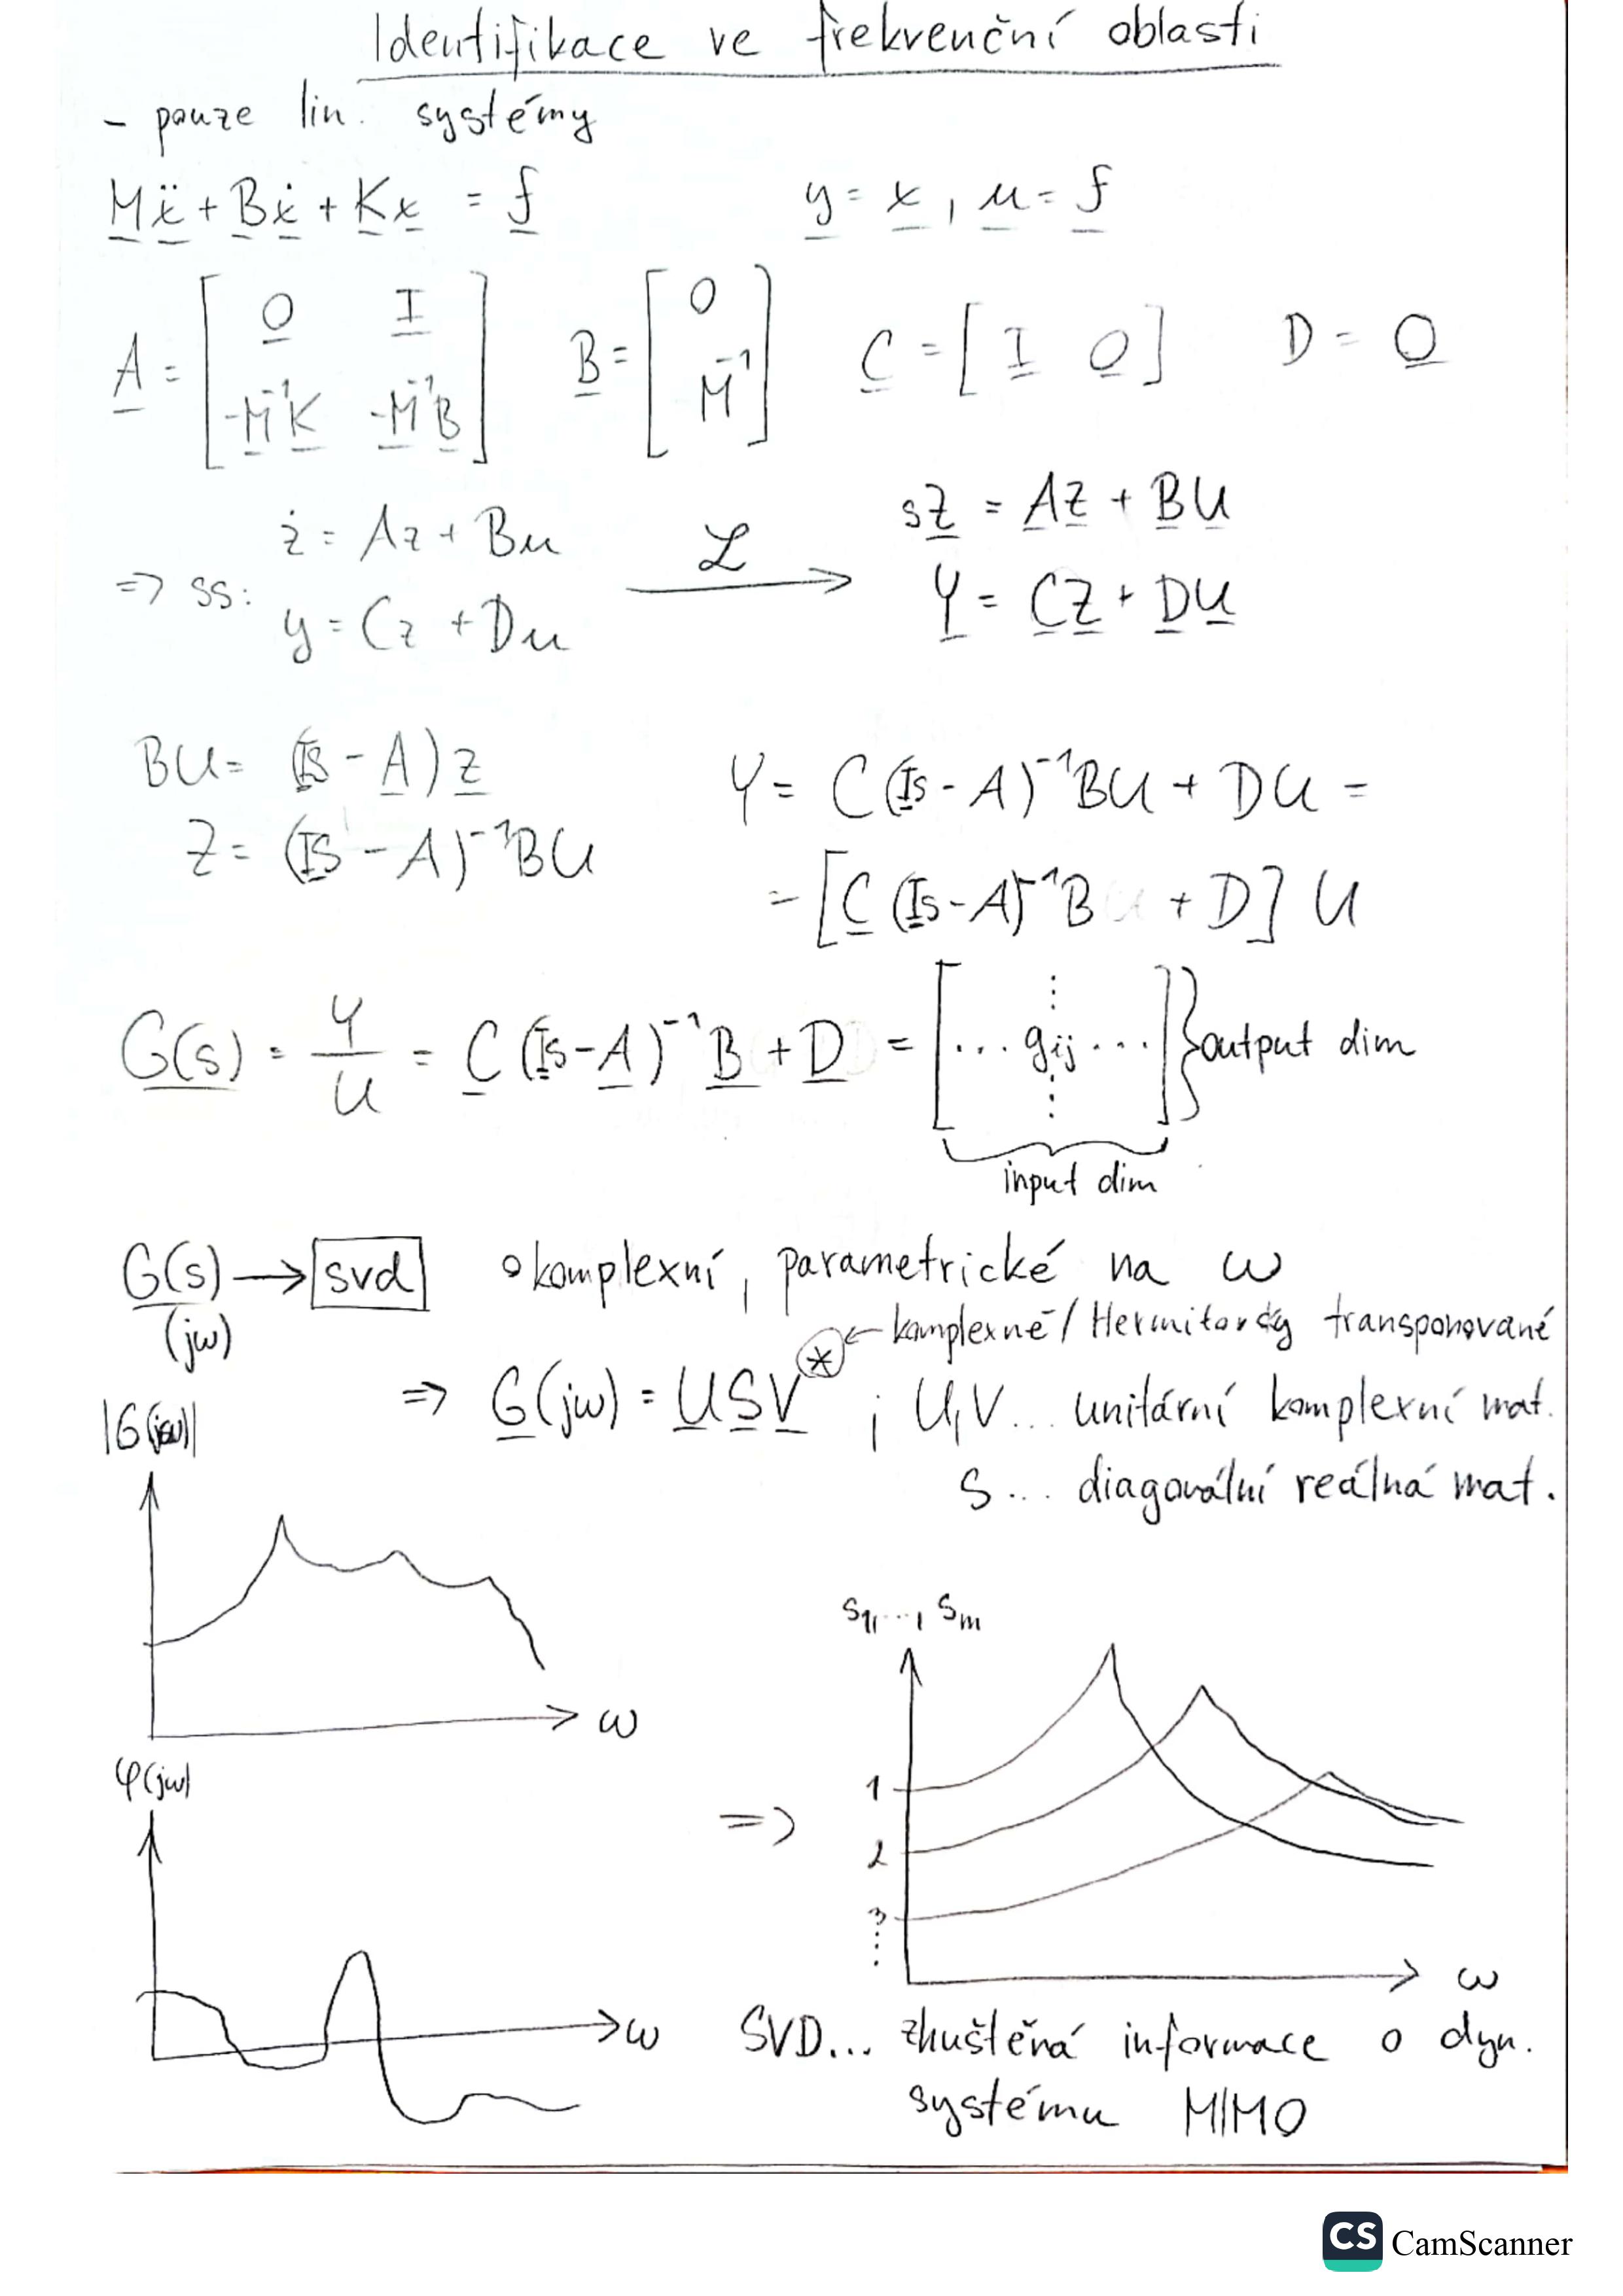 Identifikace ve frekvenční oblasti
- pouze lin. systémy
Mẍ + Bẋ + Kx = f    y = x, u = f
A = [ 0 I ; -M⁻¹K -M⁻¹B ]    B = [ 0 ; M⁻¹ ]    C = [ I 0 ]    D = 0
=> ss:
ż = Az + Bu
y = Cz + Du
ℒ
sZ = AZ + BU
Y = CZ + DU
BU = (Is - A)z
Z = (Is - A)⁻¹BU
Y = C(Is - A)⁻¹BU + DU =
= [C(Is - A)⁻¹B + D] U
G(s) = Y/U = C(Is - A)⁻¹B + D = [ ... gij ... ] } output dim
input dim
G(s) → svd    o komplexní, parametrické na ω
(jω)
← komplexně / Hermitovsky transponované
=> G(jω) = USV* ; U,V... unitární komplexní mat.
S... diagonální reálná mat.
|G(jω)|
ω
φ(jω)
ω
=>
s1,...,sm
1
2
3
⋮
ω
SVD... zhuštěná informace o dyn.
systému MIMO
CS CamScanner